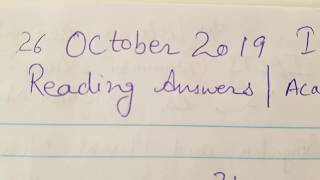 26 October 2019 I
Reading Answers | Aca